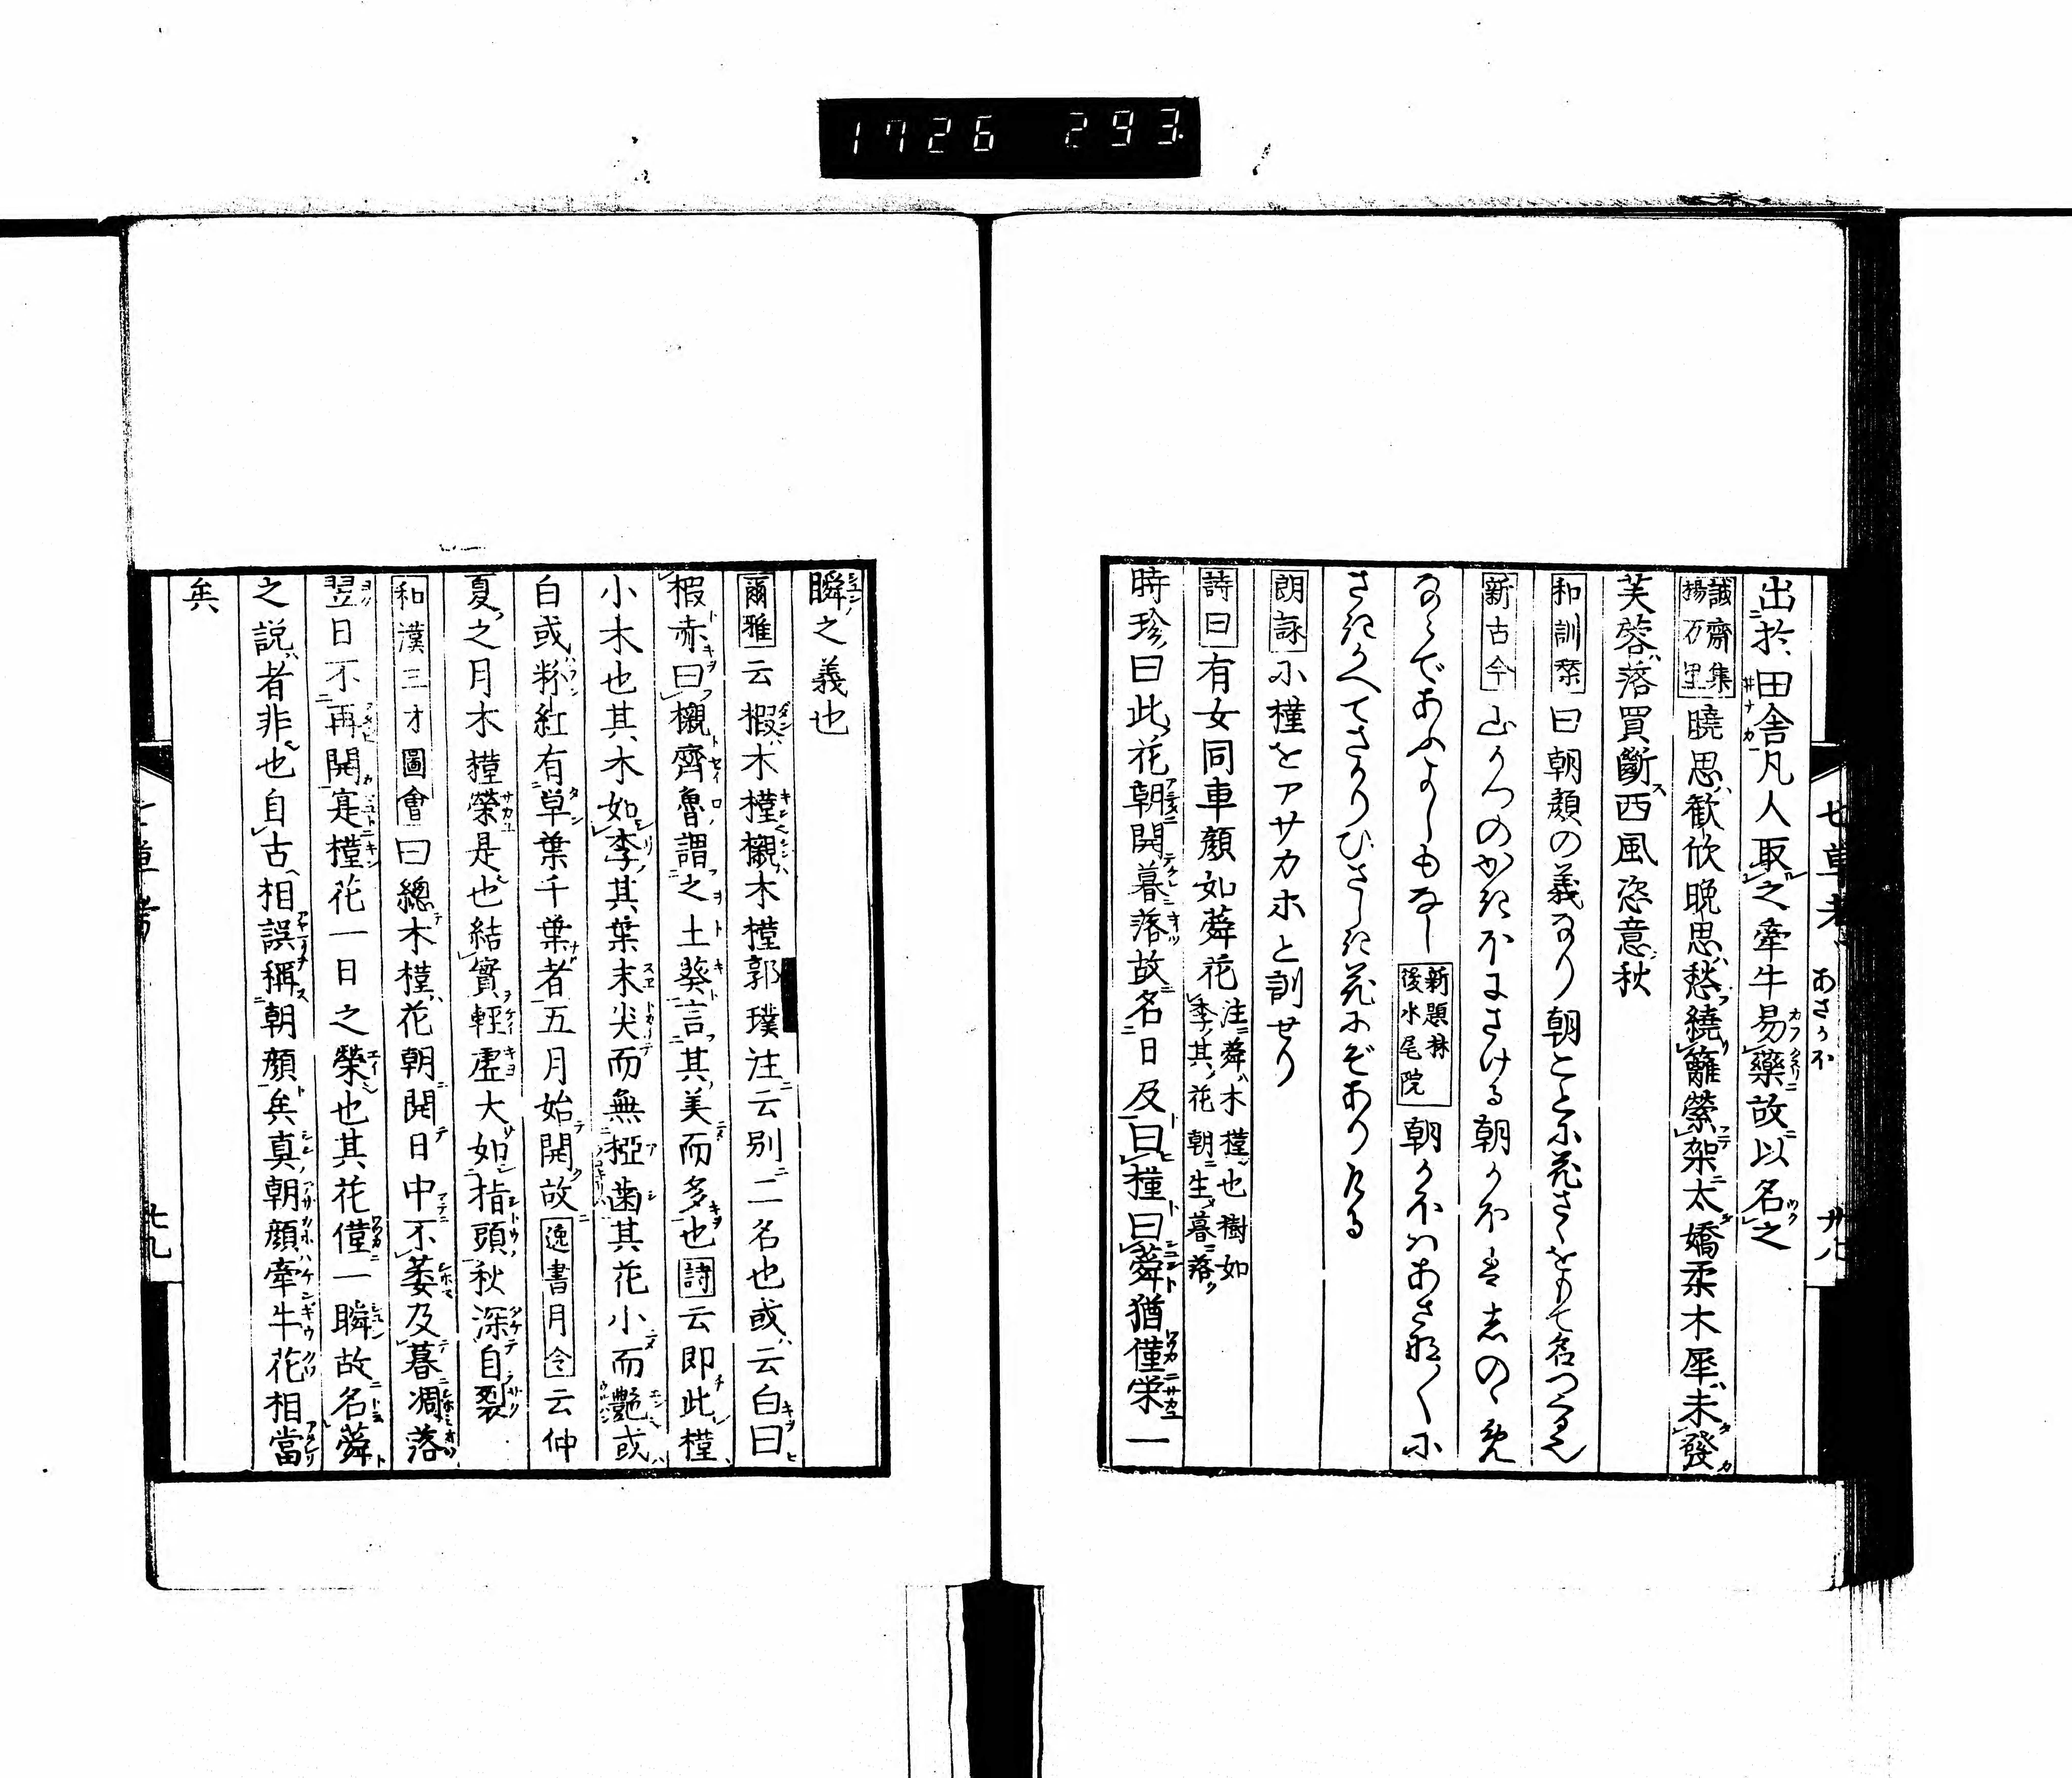 1726 293
七草考 あさかほ 廿八
出於田舎凡人取之牽牛易藥故以名之
誠齋集 揚万里 曉思歓欣晩思愁繞籬縈架太嬌柔木犀未發
芙蓉落買斷西風恣意秋
和訓栞 曰朝顔の義なり朝ことに花さくをもて名つくる也
新古今 山かつのかきほにさける朝かほはしのゝめ
ならであふよしもなし 新題林 後水尾院 朝かほはあさな〳〵に
さきかへてさかりひさしき花にぞありける
朗詠 小槿をアサカホと訓せり
詩曰 有女同車顔如蕣花 注蕣木槿也樹如 李其花朝生暮落
時珍曰此花朝開暮落故名日及曰槿曰蕣猶僅栄一
瞬之義也
爾雅 云椴木槿櫬木槿郭璞注云別二名也或云白曰
椴赤曰櫬齊魯謂之土葵言其美而多也 詩 云即此槿
小木也其木如李其葉末尖而無椏歯其花小而艶或
白或粉紅有単葉千葉者五月始開故 逸書月令 云仲
夏之月木槿榮是也結實輕虚大如指頭秋深自裂
和漢三才圖會 曰總木槿花朝開日中不萎及暮凋落
翌日不再開寔槿花一日之榮也其花僅一瞬故名蕣
之説者非也自古相誤稱朝顔矣真朝顔牽牛花相當
矣